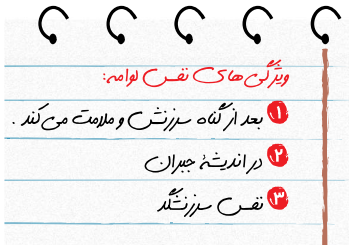 ویژگی‌های نفس لوامه:
۱ بعد از گناه سرزنش و ملامت می‌کند.
۲ در اندیشهٔ جبران
۳ نفس سرزنشگر